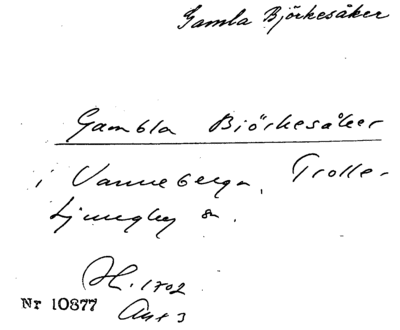 Gamla Björkesåker
Gambla Biörkesåker
i Vanneberga, Trolle-
Ljungby sn.
Jb. 1702
Nr 10877
Avs 3